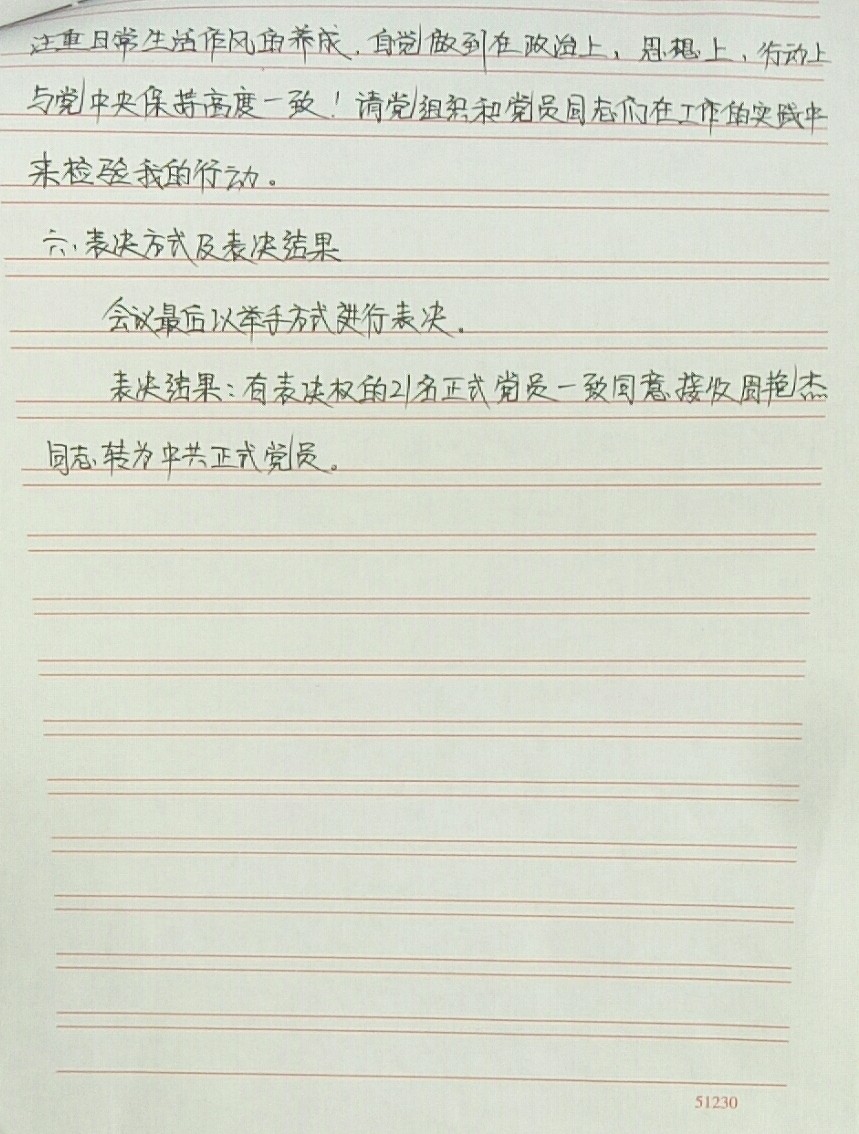 注重日常生活作风的养成，自觉做到在政治上、思想上、行动上
与党中央保持高度一致！请党组织和党员同志们在工作的实践中
来检验我的行动。
六、表决方式及表决结果
会议最后以举手方式进行表决。
表决结果：有表决权的21名正式党员一致同意接收周艳杰
同志转为中共正式党员。
51230